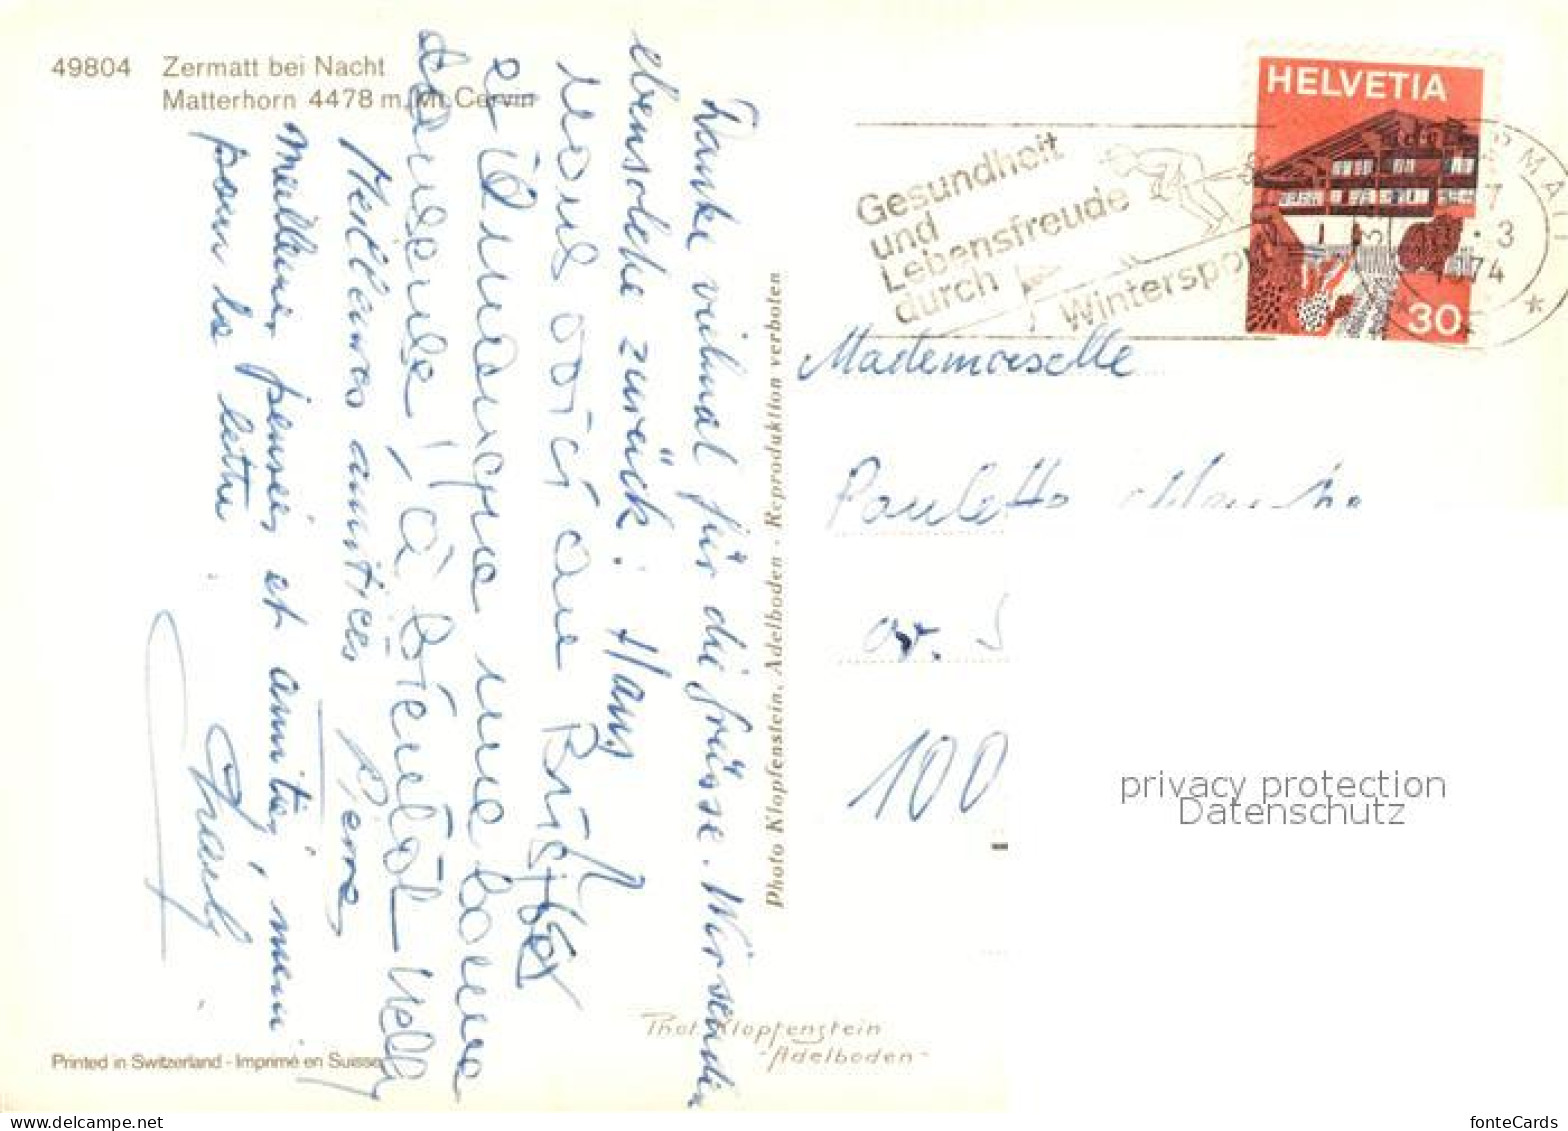 49804 Zermatt bei Nacht
Matterhorn 4478 m, Mt. Cervin
Danke vielmal für die Grüsse. Wir senden
ebensolche zurück: Hans
Nous voici au
et dimanche une bonne
à bientôt Nelly
Meilleures amitiés Pierre
Meilleures pensées et amitiés, merci
pour la lettre
Photo Klopfenstein, Adelboden - Reproduktion verboten
Phot. Klopfenstein
-Adelboden-
Printed in Switzerland - Imprimé en Suisse
Gesundheit
und
Lebensfreude
durch
Wintersport
HELVETIA
30
7
3
1974
Mademoiselle
Paulette
av.
100
privacy protection
Datenschutz
fonteCards